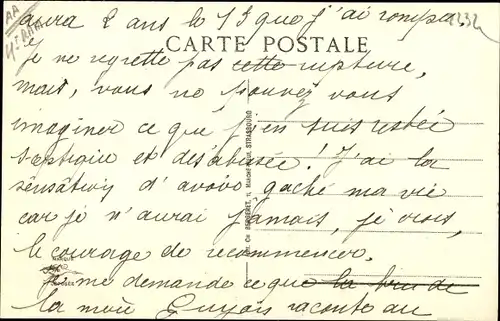 aura 2 ans le 13 que j'ai rompu,
CARTE POSTALE
Je ne regrette pas cette rupture,
mais, vous ne pouvez vous
imaginer ce que j'en suis restée
sceptique et désabusée! J'ai la
sensation d'avoir gâché ma vie
car je n'aurai jamais, je crois,
le courage de recommencer.
Je me demande ce que la bru de
la mère Guyois raconte au